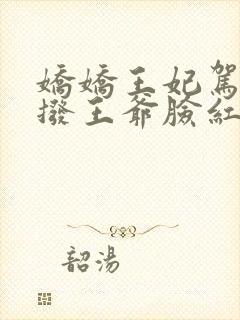 嬌嬌王妃駕
撥王爺臉紅
韶湯